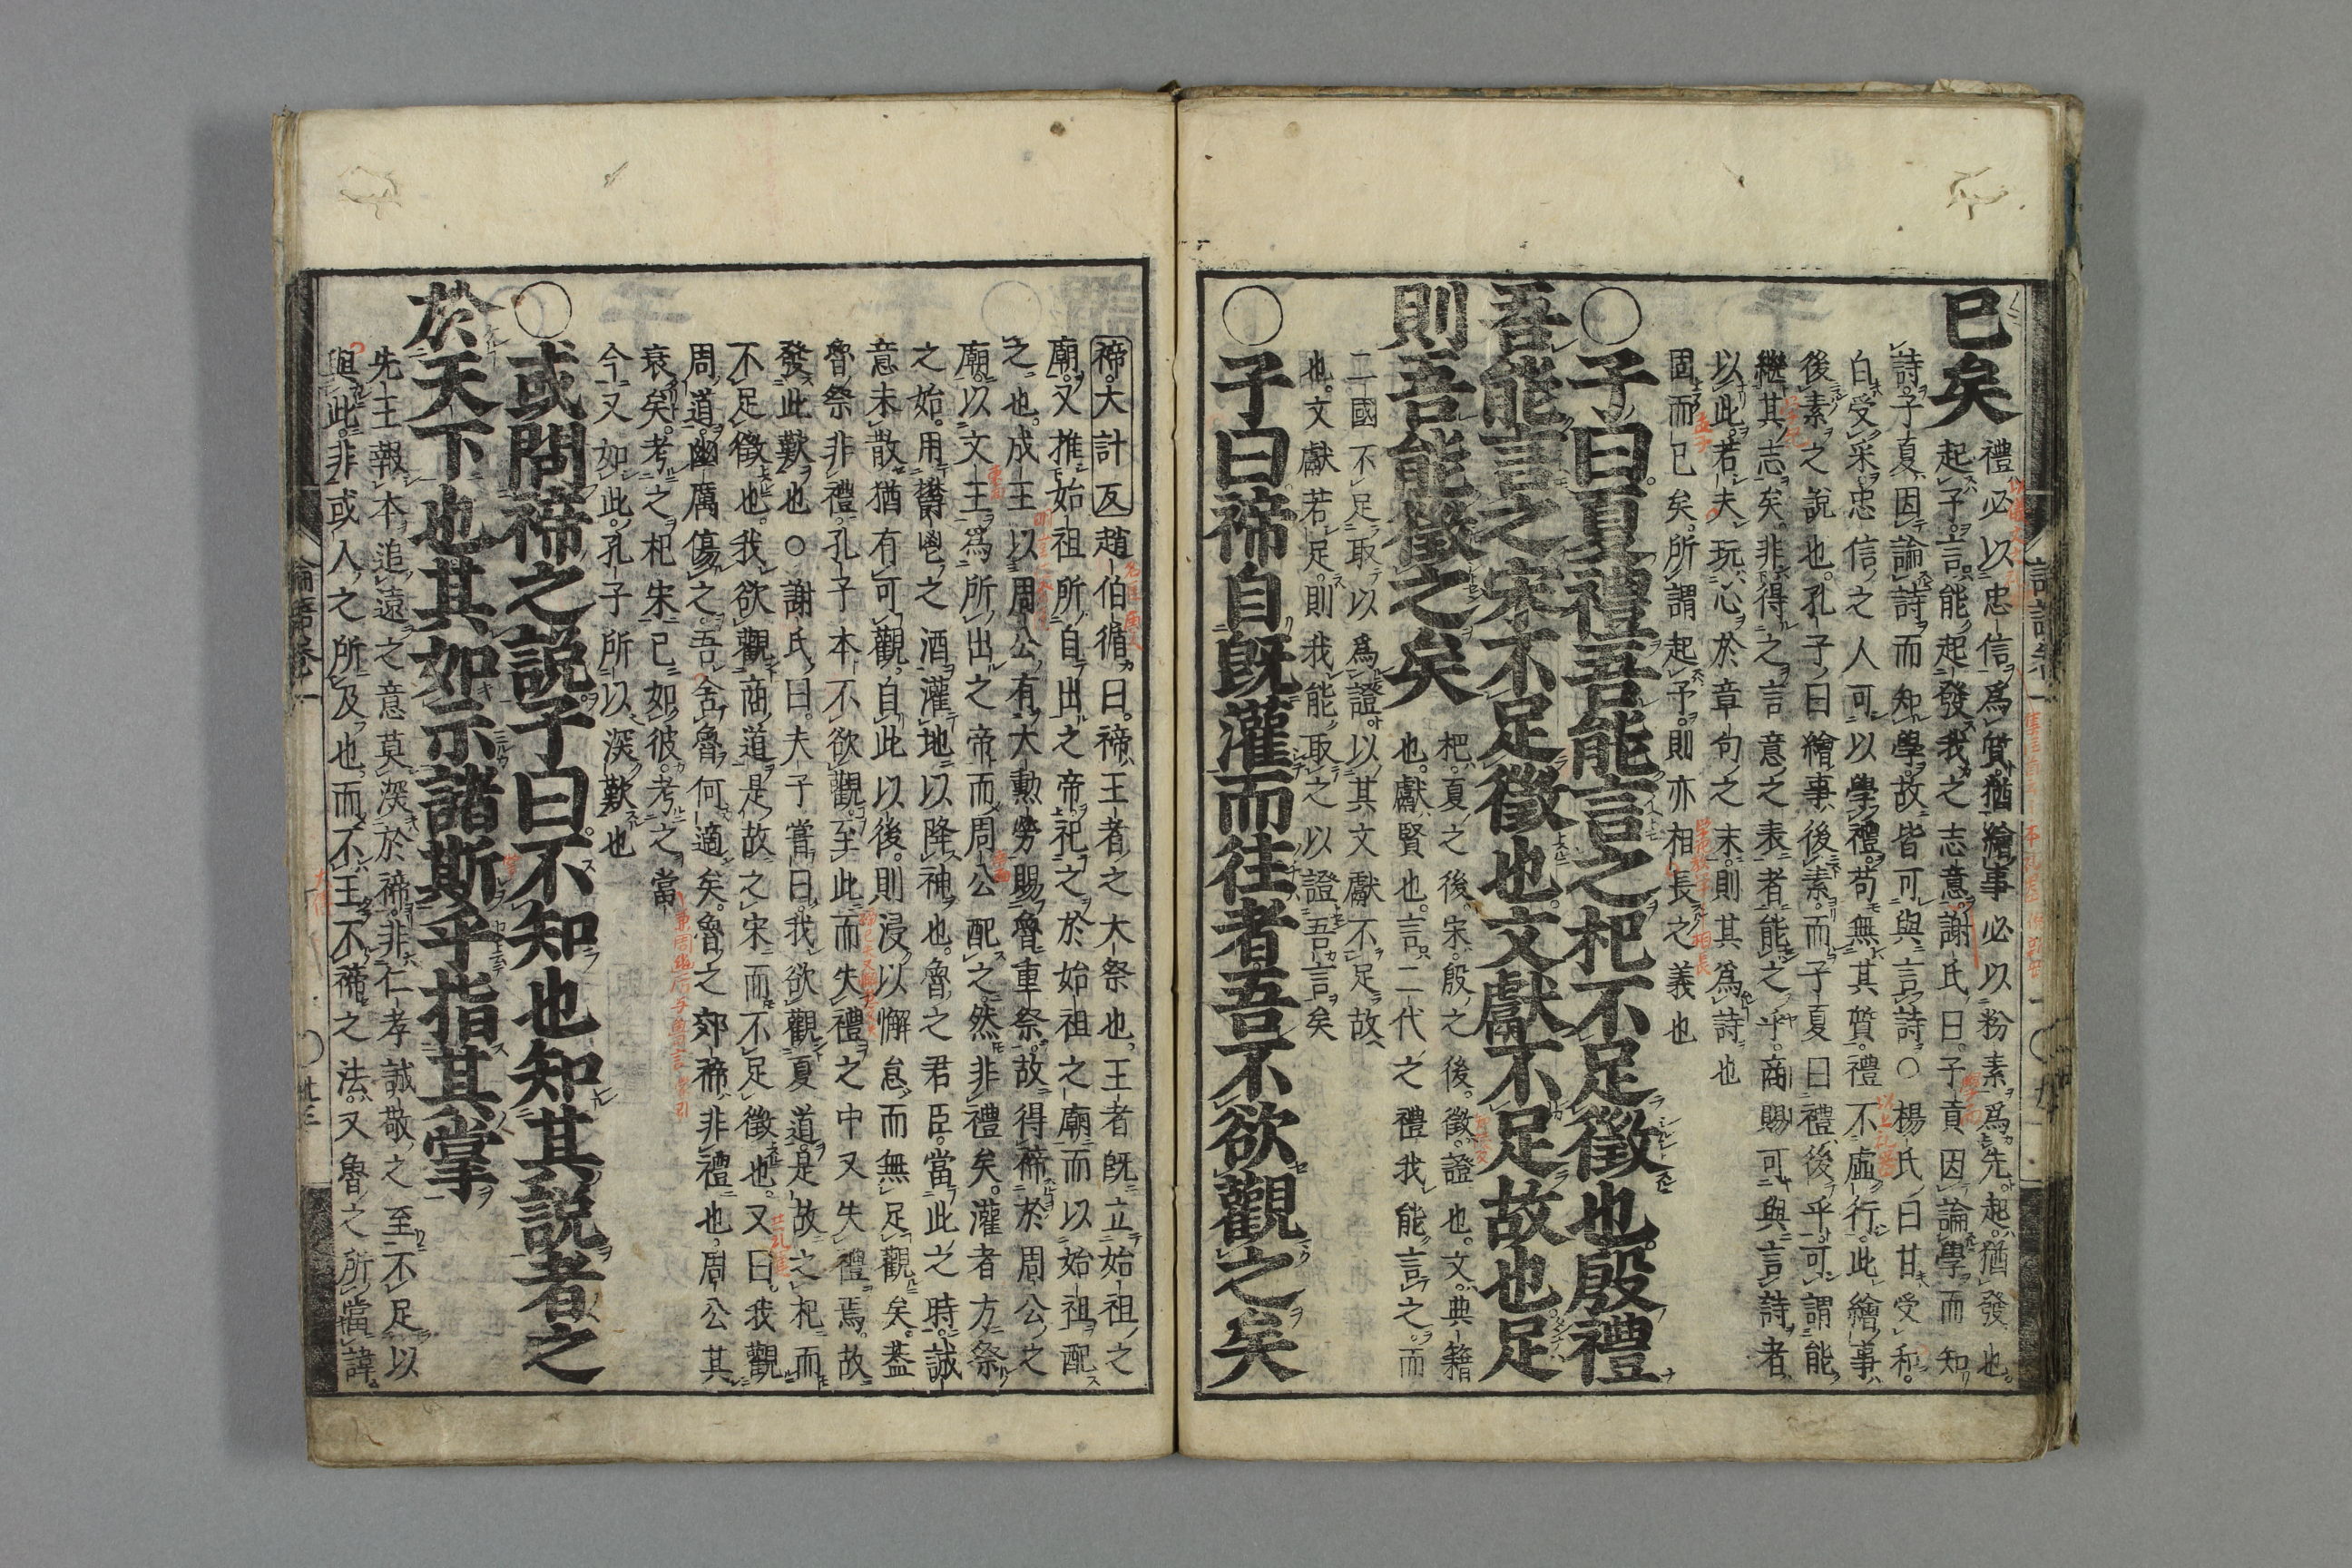 已矣
禮必以忠信爲質猶繪事必以粉素爲先起猶發也
起子言能起發我之志意謝氏曰子貢因論學而知
詩子夏因論詩而知學故皆可與言詩○楊氏曰甘受和
白受采忠信之人可以學禮苟無其質禮不虛行此繪事
後素之說也孔子曰繪事後素而子夏曰禮後乎可謂能
繼其志矣非得之言意之表者能之乎商賜可與言詩者
以此若夫玩心於章句之末則其爲詩也
固而已矣所謂起予則亦相長之義也
○子曰夏禮吾能言之杞不足徵也殷禮
吾能言之宋不足徵也文獻不足故也足
則吾能徵之矣
杞夏之後宋殷之後徵證也文典籍
也獻賢也言二代之禮我能言之而
二國不足取以爲證以其文獻不足故
也文獻若足則我能取之以證吾言矣
○子曰禘自既灌而往者吾不欲觀之矣
禘大計反趙伯循曰禘王者之大祭也王者既立始祖之
廟又推始祖所自出之帝祀之於始祖之廟而以始祖配
之也成王以周公有大勳勞賜魯重祭故得禘於周公之
廟以文王爲所出之帝而周公配之然非禮矣灌者方祭
之始用鬱鬯之酒灌地以降神也魯之君臣當此之時誠
意未散猶有可觀自此以後則浸以懈怠而無足觀矣蓋
魯祭非禮孔子本不欲觀至此而失禮之中又失禮焉故
發此歎也○謝氏曰夫子嘗曰我欲觀夏道是故之杞而
不足徵也我欲觀商道是故之宋而不足徵也又曰我觀
周道幽厲傷之吾舍魯何適矣魯之郊禘非禮也周公其
衰矣考之杞宋已如彼考之當
今又如此孔子所以深歎也
○或問禘之說子曰不知也知其說者之
於天下也其如示諸斯乎指其掌
先王報本追遠之意莫深於禘非仁孝誠敬之至不足以
與此非或人之所及也而不王不禘之法又魯之所當諱
論語卷一
○廿三